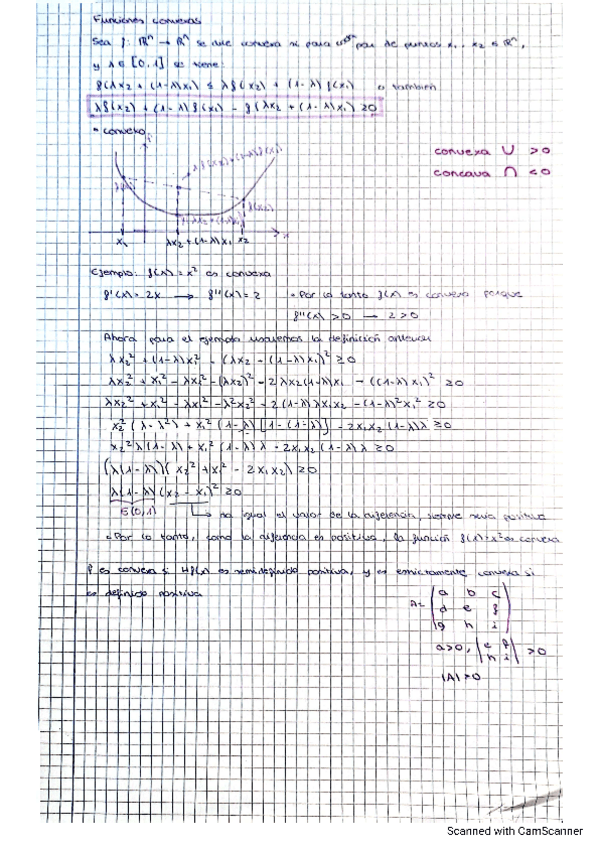 Funciones convexas
Sea f: ℝⁿ → ℝⁿ se dice convexa si para par de puntos x₁, x₂ ∈ ℝⁿ,
y λ ∈ [0,1] se tiene:
f(λx₂ + (1-λ)x₁) ≤ λf(x₂) + (1-λ)f(x₁) o también
λf(x₂) + (1-λ)f(x₁) - f(λx₂ + (1-λ)x₁) ≥ 0
• convexo
convexa ∪ > 0
concava ∩ < 0
λf(x₂)+(1-λ)f(x₁)
f(x₂)
x₁ λx₂+(1-λ)x₁ x₂ x
Ejemplo: f(x) = x² es convexa
f'(x) = 2x → f''(x) = 2 • Por lo tanto f(x) es convexa porque
f''(x) > 0 → 2 > 0
Ahora para el ejemplo usaremos la definición anterior
λx₂² + (1-λ)x₁² - (λx₂ - (1-λ)x₁)² ≥ 0
λx₂² + x₁² - λx₁² - (λx₂)² - 2λx₂(1-λ)x₁ - ((1-λ)x₁)² ≥ 0
λx₂² + x₁² - λx₁² - λ²x₂² - 2(1-λ)λx₁x₂ - (1-λ)²x₁² ≥ 0
x₂²(λ-λ²) + x₁²(1-λ)[1-(1-λ)] - 2x₁x₂(1-λ)λ ≥ 0
x₂²λ(1-λ) + x₁²(1-λ)λ - 2x₁x₂(1-λ)λ ≥ 0
(λ(1-λ))(x₂² + x₁² - 2x₁x₂) ≥ 0
λ(1-λ)(x₂ - x₁)² ≥ 0
∈(0,1) → igual el valor de la diferencia, siempre sera positiva
• Por lo tanto, como la diferencia es positiva, la función f(x)=x² es convexa
f es convexa si Hf(x) es semidefinido positiva, y es estrictamente convexa si
es definido positiva
A = (a b c
d e f
g h i)
a>0, |e f
h i| > 0
|A| > 0
Scanned with CamScanner